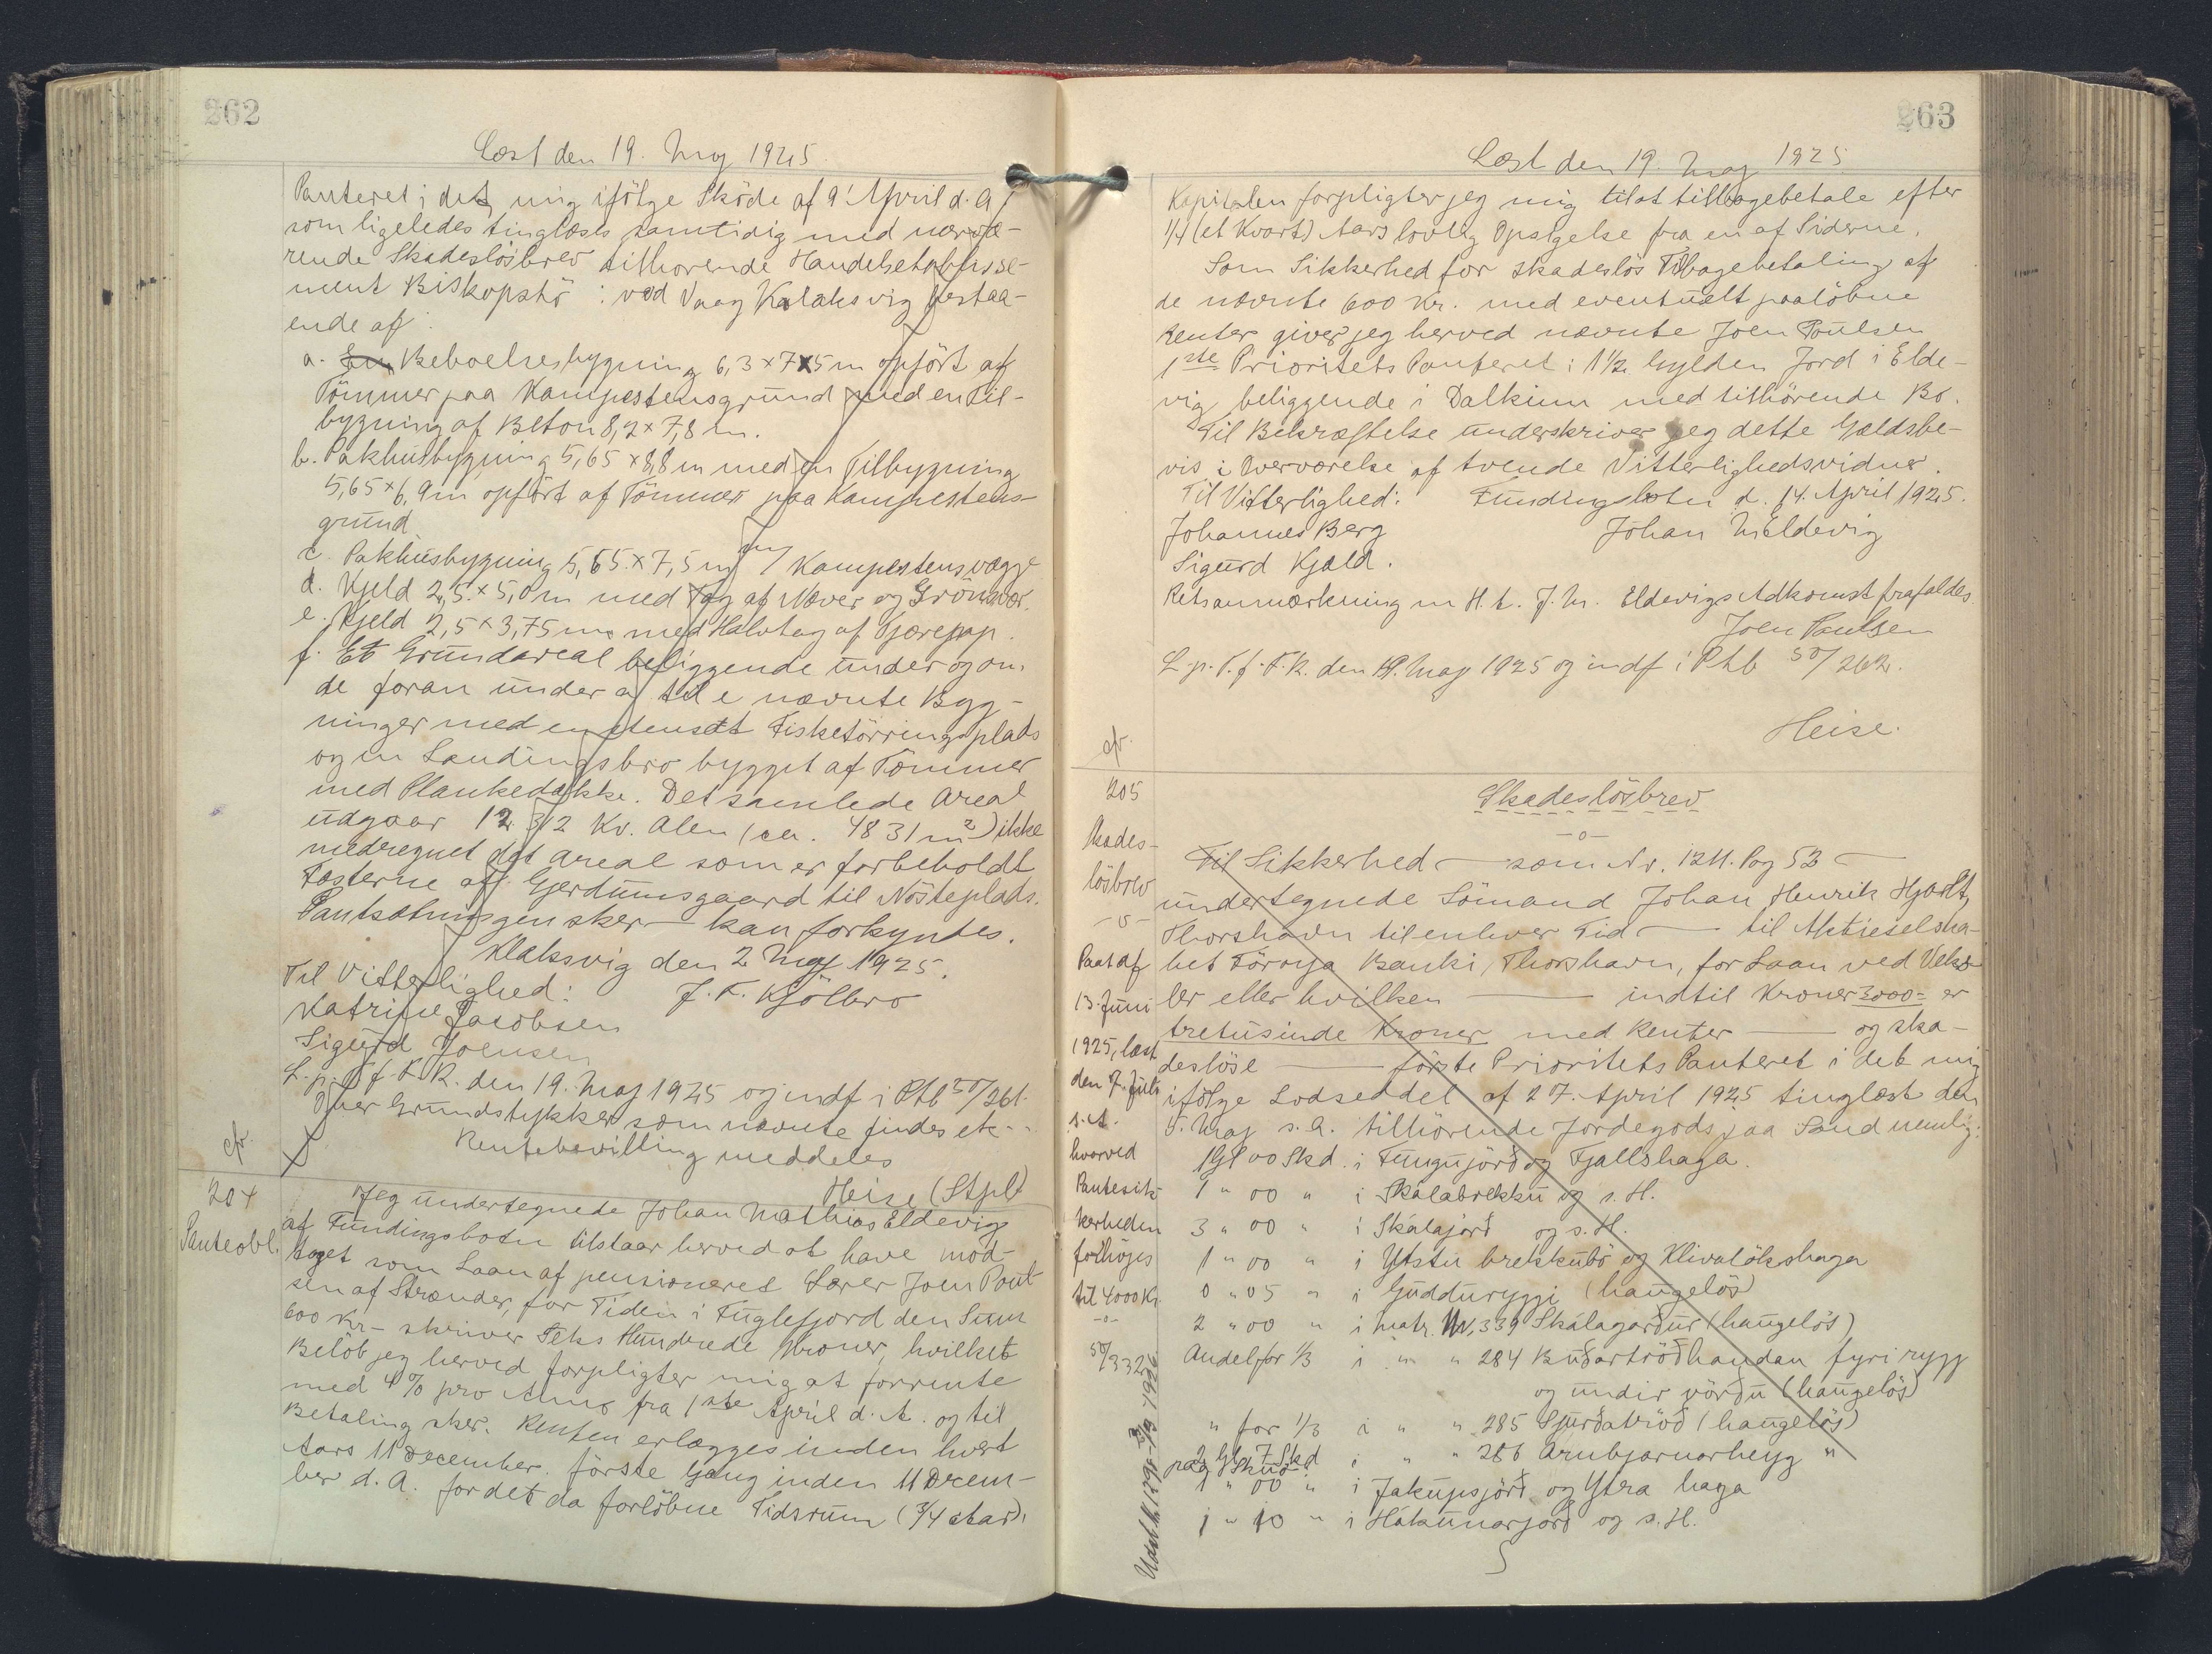 262
Læst den 19. Maj 1925.
Panteret i det mig ifölge Sköde af 9' April d. A
som ligeledes tinglæses samtidig med nærvæ-
rende Skadeslösbrev tilhørende Handelsetablisse-
ment Biskopstö i: ved Vaag Klaksvig bestaa-
ende af:
a. En Beboelsesbygning 6,3 x 7,5 m opfört af
Tömmer paa Kampestensgrund med en Til-
bygning af Beton 8,2 x 7,8 m.
b. Pakhusbygning 5,65 x 8,8 m med en Tilbygning
5,65 x 6,9 m opfört af Tömmer paa Kampestens-
grund
c. Pakhusbygning 5,65 x 7,5 m m/ Kampestensvægge
d. Kjeld 2,5 x 5,0 m med Tag af Næver og Grönsvær.
e. Kjeld 2,5 x 3,75 m med Halvtag af Tjærepap.
f. Et Grundareal beliggende under og om
de foran under a til e nævnte Byg-
ninger med en stensat Fisketörringsplads
og en Landingsbro bygget af Tömmer
med Plankedække. Det samlede Areal
udgaar 12 312 Kv. Alen (ca. 4831 m²) ikke
medregnet det Areal som er forbeholdt
Fæsterne af Gjerdumsgaard til Nösteplads.
Pantsætningen sker — kan forkyntes.
Klaksvig den 2 Maj 1925.
Til Vitterlighed: J. F. Kjölbro
Katrine Jacobsen
Sigurd Joensen
L. p. T. f. F. R. den 19. Maj 1925 og indf i Ptb 50/261.
Over Grundstykker som nævnte findes ek--
Rentebevilling meddeles
Heise (Stpl)
cfr.
204
Panteobl.
Jeg undertegnede Johan Mathias Eldevig
af Fundingsbotn tilstaar herved at have mod-
taget som Laan af pensioneret Lærer Joen Poul-
sen af Strænder, for Tiden i Fuglefjord den Sum
600 Kr – skriver Seks Hundrede Kroner, hvilket
Belöb jeg herved forpligter mig at forrente
med 4% pro Anno fra 1ste April d. A. og til
Betaling sker. Renten erlægges inden hvert
Aars 11 December. förste Gang inden 11 Decem-
ber d. A. for det da forlöbne Tidsrum (3/4 Aar).
263
Læst den 19. Maj 1925
Kapitalen forpligter jeg mig til at tilbagebetale efter
1/4 (et Kvart) Aars lovlig Opsigelse fra en af Siderne.
Som Sikkerhed for skadeslös Tilbagebetaling af
de nævnte 600 Kr. med eventuelt paalöbne
Renter giver jeg herved nævnte Joen Poulsen
1ste Prioritets Panteret i: 1 1/2 Gylden Jord i Elde-
vig beliggende i Dalkinn med tilhörende Bø.
Til Bekræftelse underskriver jeg dette Gældsbe-
vis i Overværelse af tvende Vitterlighedsvidner.
Til Vitterlighed: Fundingsbotn d. 14. April 1925.
Johannes Berg Johan M Eldevig
Sigurd Kjæld.
Retsanmærkning m H. t. J. M. Eldevigs Adkomst frafaldes
Joen Paulsen
L. p. T. f. F. R. den 19. Maj 1925 og indf i Ptb 50/262.
Heise.
cfr.
205
Skades-
lösbrev
–o–
Paat af
13. Juni
1925, læst
den 7. Juli
s. A.
hvorved
Pantesik-
kerheden
forhöjes
til 4000 Kr.
–o–
50/332
Skadeslösbrev
–o–
Til Sikkerhed — som Nr. 1211. Pag 52 —
undertegnede Sömand Johan Henrik Hjort,
Thorshavn til enhver Tid — til Aktieselska-
bet Föroya Banki, Thorshavn, for Laan ved Veks-
ler eller hvilken — indtil Kroner 3000= er
tretusinde Kroner med Renter — og ska-
deslöse — förste Prioritets Panteret i det mig
ifölge Lodseddel af 27. April 1925 tinglæst den
5. Maj s. A. tilhörende Jordegods paa Sand nemlig:
1 Gl 00 Skd. i Tungujörð og Fjallshaga.
1 " 00 " i Skálabrekku og s. H.
3 " 00 " i Skálajörð og s. H.
1 " 00 " i Ytstu brekkubö og Klivalökshaga
0 " 05 " i Gudduryggi (haugelös)
2 " 00 " i Matr. Nr. 339 Skálagarður (haugelös)
Andel for 1/3 i " " 284 Buðartröð handan fyri rygg
og undir vörðu (haugelös)
" for 1/3 i " " 285 Sjurðatröð (haugelös)
2 Gl 7 Skd i " " 286 Arnbjarnarheyg "
paa Skuö:
1 " 00 " i Jakupsjörð og Ytra haga
1 " 10 " i Hákunarjörð og s. H.